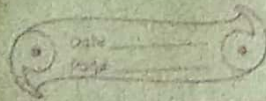 DATE
PAGE